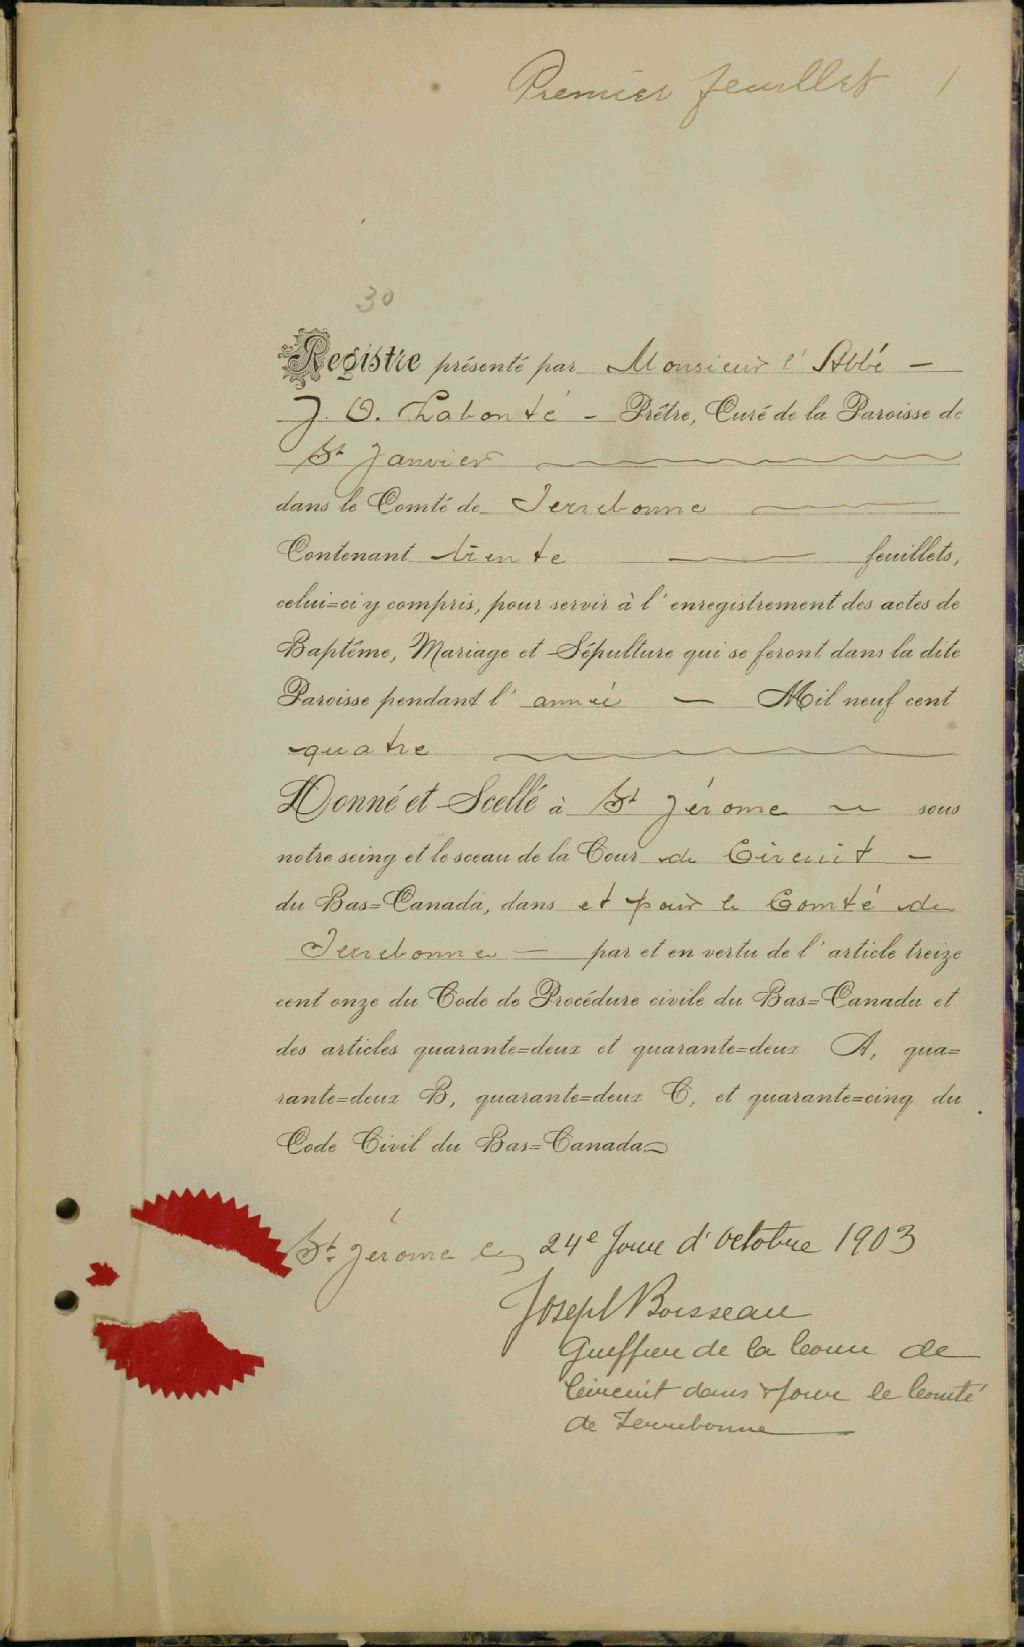 Premier feuillet 1
30
Registre présenté par Monsieur l'Abbé -
J. O. Labonté - Prêtre, Curé de la Paroisse de
St Janvier
dans le Comté de Terrebonne
Contenant trente feuillets,
celui=ci y compris, pour servir à l'enregistrement des actes de
Baptême, Mariage et Sépulture qui se feront dans la dite
Paroisse pendant l'année - Mil neuf cent
quatre
Donné et Scellé à St Jérome sous
notre seing et le sceau de la Cour de Circuit -
du Bas=Canada, dans et pour le Comté de
Terrebonne - par et en vertu de l'article treize
cent onze du Code de Procédure civile du Bas=Canada et
des articles quarante=deux et quarante=deux A, qua=
rante=deux B, quarante=deux C, et quarante=cinq du
Code Civil du Bas=Canada
St Jérome le 24e Jour d'Octobre 1903
Joseph Boisseau
Greffier de la Cour de
Circuit dans & pour le Comté
de Terrebonne